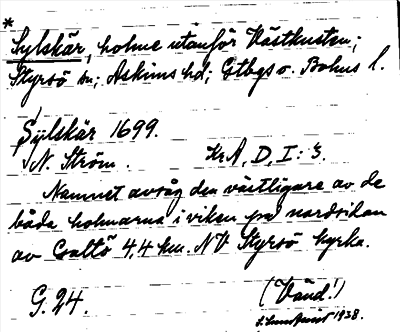 *
Sylskär, holme utanför Västkusten;
Styrsö sn; Askims hd; Gtbgs o. Bohus l.
Sylskär 1699.
N. Ström. KrA, D, I: 3.
Namnet avsåg den västligare av de
båda holmarna i viken på nordsidan
av Galtö 4,4 km. NV Styrsö kyrka.
G. 24. (Vänd!)
1938.